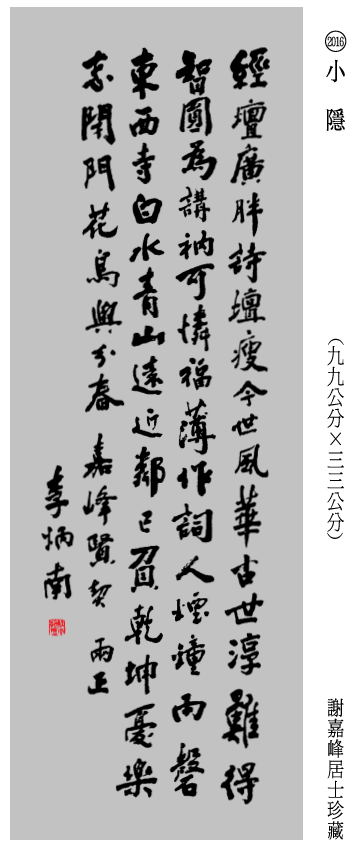 2016 小隱
(九九公分×三三公分)
謝嘉峰居士珍藏
經壇廣胖詩壇瘦今世風華古世淳難得
智圓為講衲可憐福薄作詞人煙鐘雨磬
東西寺白水青山遠近鄰已負乾坤憂樂
志閉門花鳥與分春 嘉峰賢契 兩正
李炳南